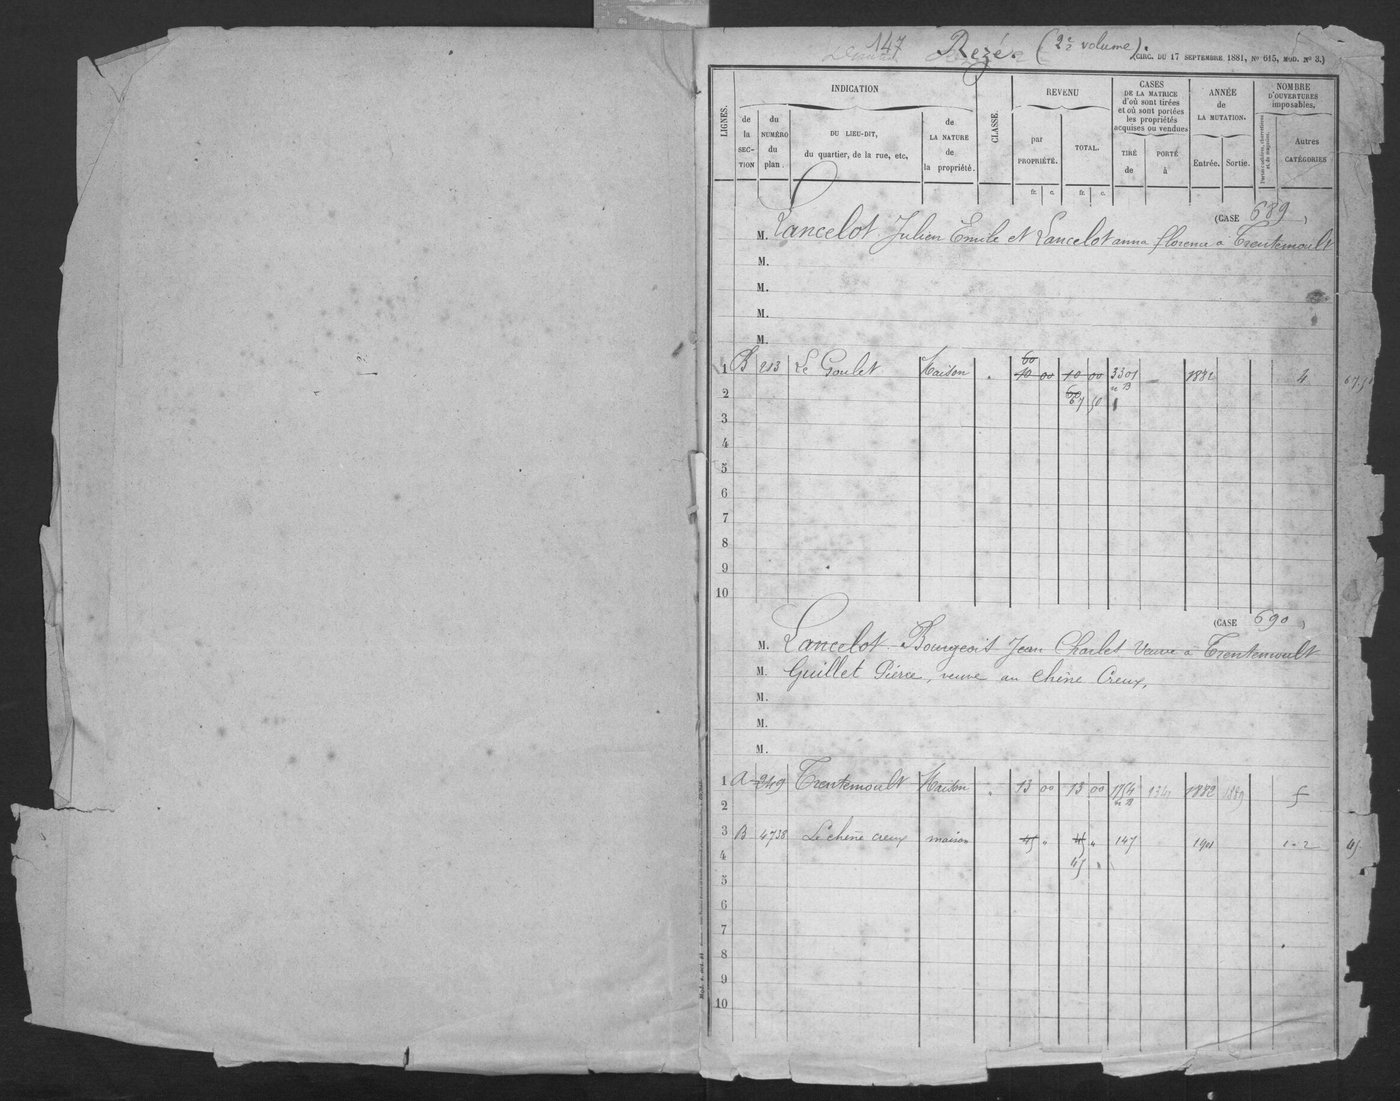 147 Rezé. (2e volume).
(CIRC. DU 17 SEPTEMBRE 1881, No 615, MOD. No 3.)
LIGNES.
INDICATION
de la SECTION
du NUMÉRO du plan.
DU LIEU-DIT, du quartier, de la rue, etc,
de LA NATURE de la propriété.
CLASSE.
REVENU
par PROPRIÉTÉ.
TOTAL.
CASES DE LA MATRICE d'où sont tirées et où sont portées les propriétés acquises ou vendues
TIRÉ de
PORTÉ à
ANNÉE de LA MUTATION.
Entrée. Sortie.
NOMBRE D'OUVERTURES imposables.
Autres CATÉGORIES
fr. c. fr. c.
(CASE 689)
M. Lancelot Julien Emile et Lancelot anna florence à Trentemoult
M.
M.
M.
M.
1 B 213 Le Goulet Maison 60 40 00 40 00 3301 1882 4 67.50
2 60 67 50
3
4
5
6
7
8
9
10
(CASE 690)
M. Lancelot Bourgeois Jean Charles Veuve à Trentemoult
M. Guillet Pierre, veuve au Chêne Creux,
M.
M.
M.
1 A 249 Trentemoult Maison 13 00 13 00 1154 1341 1882 1889 5
2
3 B 4738 Le chêne creux maison 45 " 45 " 147 1901 1-2 45
4 45
5
6
7
8
9
10